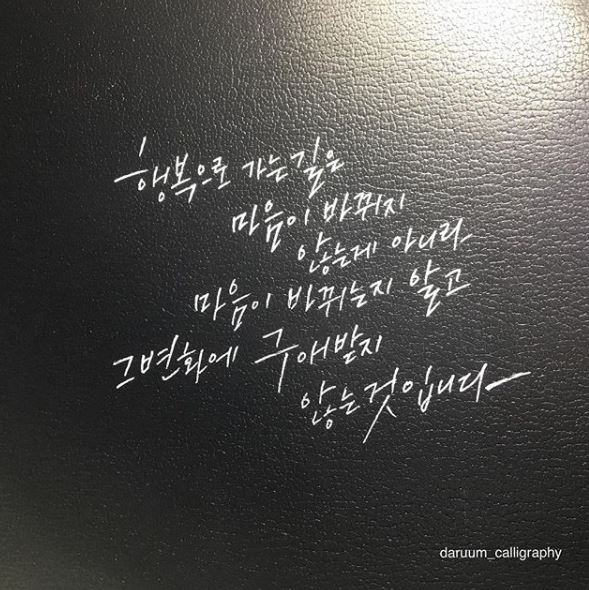 행복으로 가는길은
마음이 바뀌지
않는게 아니라
마음이 바뀌는지 알고
그변화에 구애받지
않는것입니다
daruum_calligraphy